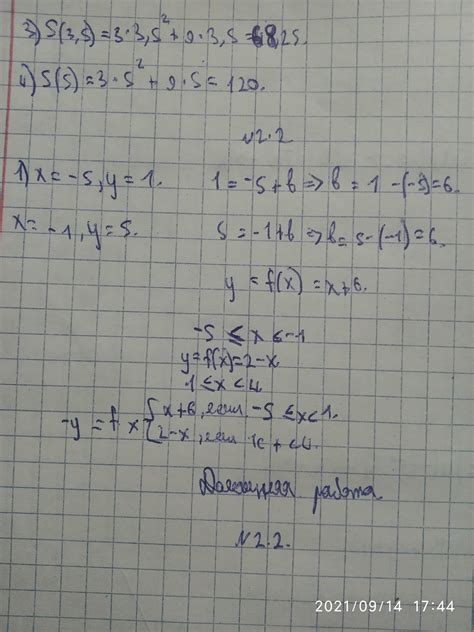 3) S(3,5) = 3·3,5² + 9·3,5 = 68,25.
4) S(5) = 3·5² + 9·5 = 120.
N2.2
1) x = -5, y = 1. 1 = -5 + b => b = 1 - (-5) = 6.
x = -1, y = 5. 5 = -1 + b => b = 5 - (-1) = 6.
y = f(x) = x + 6.
-5 ≤ x ≤ -1
y = f(x) = 2 - x
1 ≤ x < 4
-y = f x { x + 6, если -5 ≤ x < 1.
2 - x, если 1
Домашняя работа
N2.2.
2021/09/14 17:44